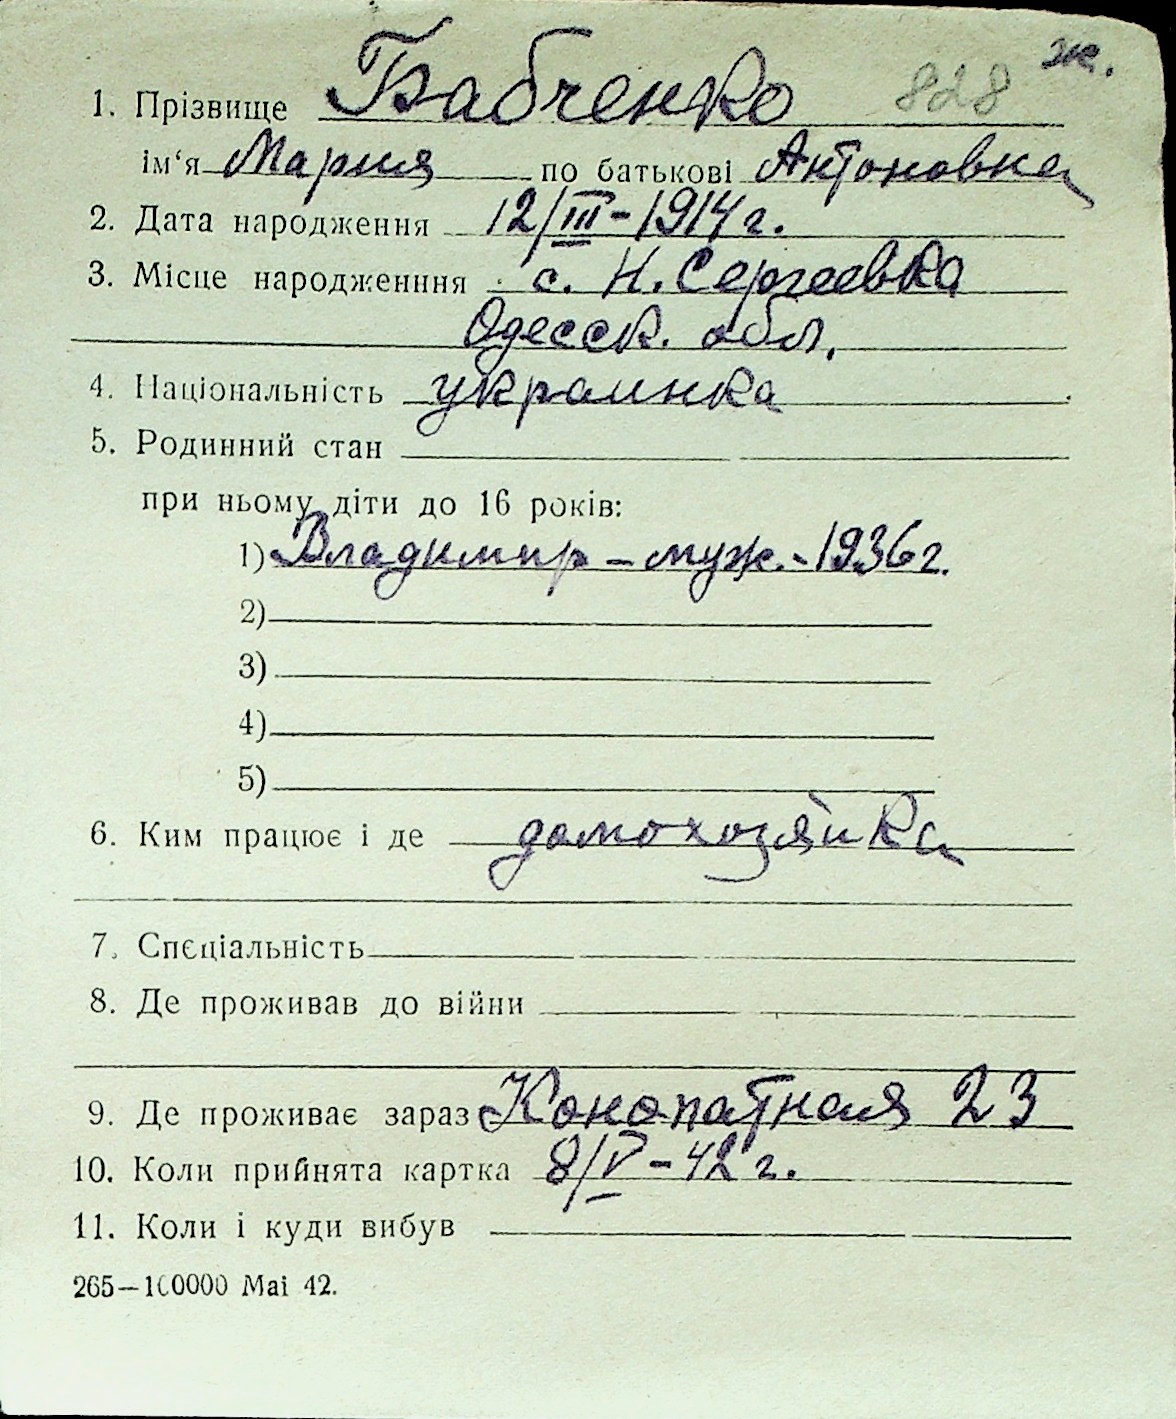 828 ж.
1. Прізвище Бабченко
ім‘я Мария по батькові Антоновна
2. Дата народження 12/III-1914 г.
3. Місце народженння с. Н. Сергеевка
Одесск. обл.
4. Національність украинка
5. Родинний стан
при ньому діти до 16 років:
1) Владимир – муж. - 1936 г.
2)
3)
4)
5)
6. Ким працює і де домохозяйка
7. Спєціальність
8. Де проживав до війни
9. Де проживає зараз Конопатная 23
10. Коли прийнята картка 8/V-42 г.
11. Коли і куди вибув
265—100000 Mai 42.